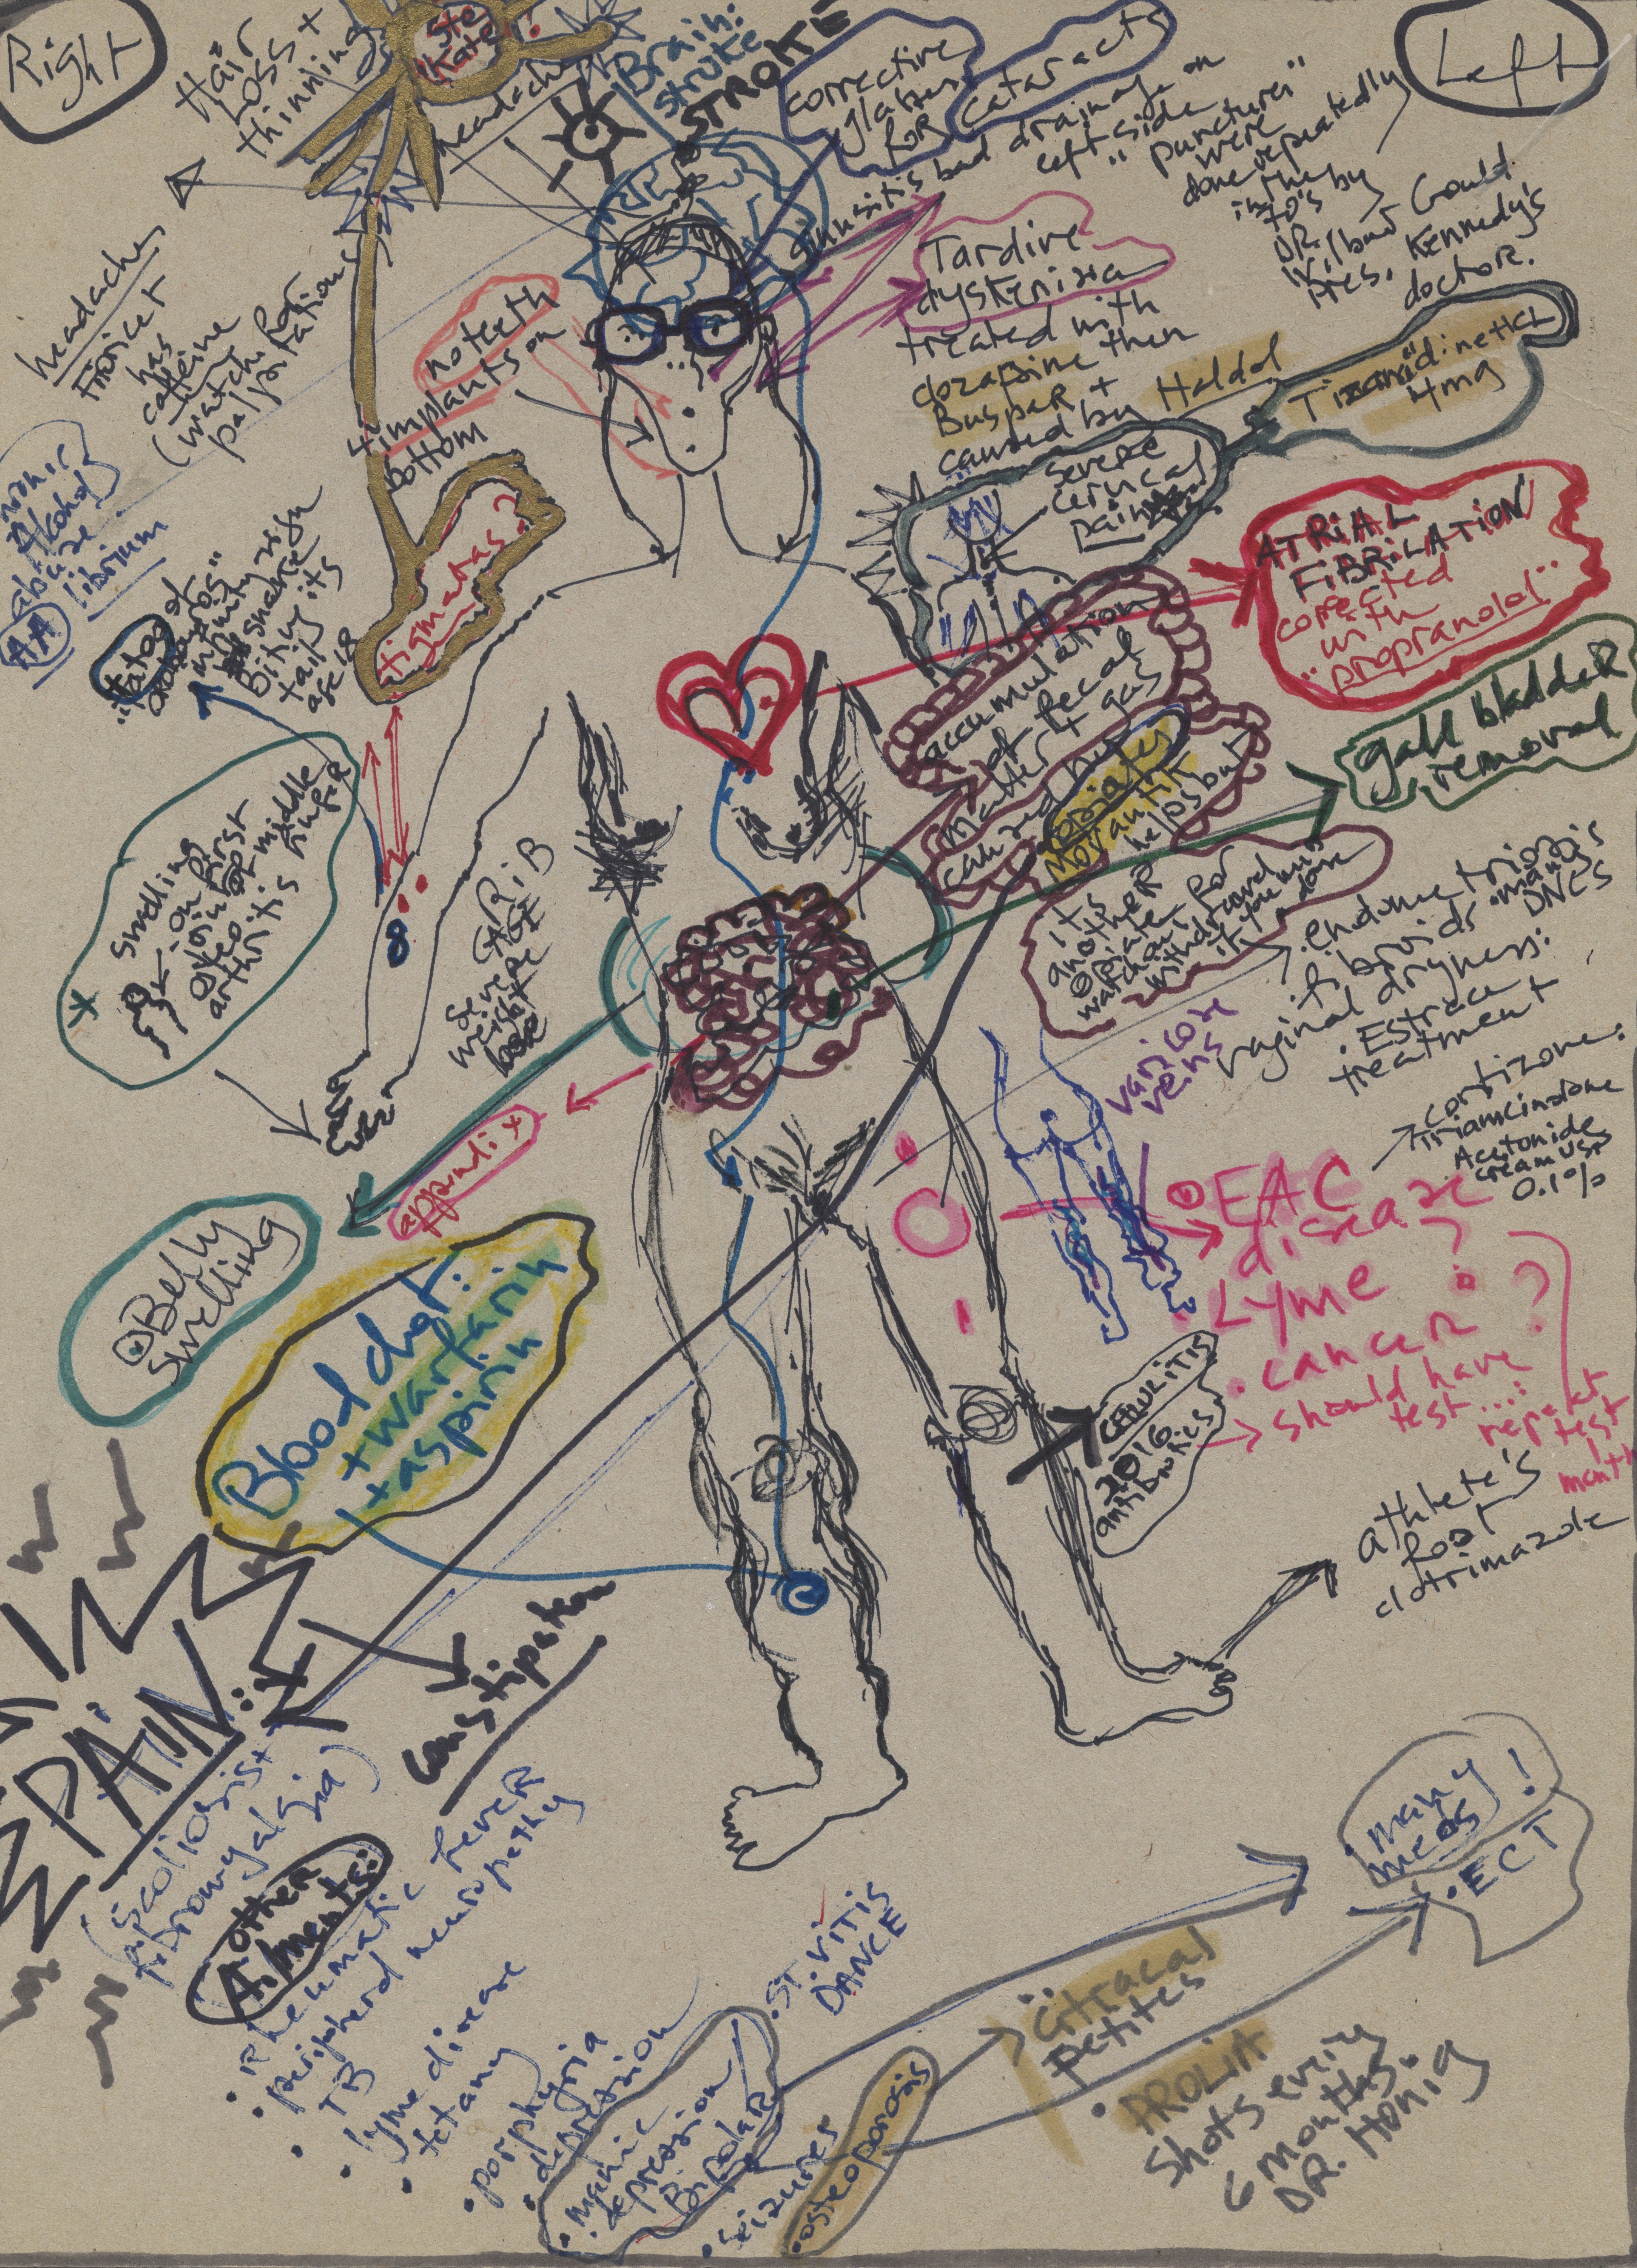 Right
Hair
Loss +
thinning
Ste
Kate?
headache
Brain:
stroke
STROKE
corrective
glasses
for cataracts
Left
sinusitis bad drainage on
left side
"punctures"
were
done repeatedly
in the
70's by
DR.
Wilbur Gould
Pres. Kennedy's
doctor.
headaches
Fioricet
has
caffeine
(watch for
palpitations)
no teeth
4 implants on
bottom
Tardive
dyskenizia
treated with
clozapine then
BuspaR +
caused by Haldol
Tizanidine HCL
4mg
severe
cervical
pain
Alcohol
abuse
librium
AA
"tatoo of
ouroboros"
infinity sign
snake
Biting its
tail
age 18
stigmatas?
ATRIAL
FIBRILATION
corrected
with
"propranolol"
accumulation
of fecal
matter + gas
caused by
opiates
Movantik
helps but
its
another
opiate
watch out for
withdrawal
if you
gall bladdeR
removal
swelling
on first
joint of middle
finger
osteo
arthritis
severe
weight
loss
endometriosis
fibroids "many"
DNCS
vaginal dryness:
Estrace
treatment
varicose
veins
cortizone:
Triamcinolone
Acetonide
cream USP
0.1%
appendix
Belly
swelling
EAC
disease
Lyme?
cancer?
should have
test...:
repeat
test
month
Blood clot:
+ warfarin
+ aspirin
cellulitis
2016.
antibiotics
athlete's
foot
clotrimazole
PAIN:
constipation
(scoliosis +
fibromyalgia)
Other
Ailments:
• Rheumatic feveR
• peripheral neuropethy
• TB
• lyme disease
• tetany
• porphyria
• depression
• manic
depression
BipolaR
• seizures
• osteoporosis
• ST. VITIS
DANCE
• citracal
petites
• PROLIA
shots every
6 months.
DR. Honig
many
meds!
• ECT